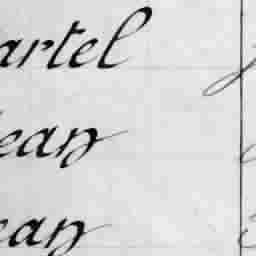 artel
ean
ean